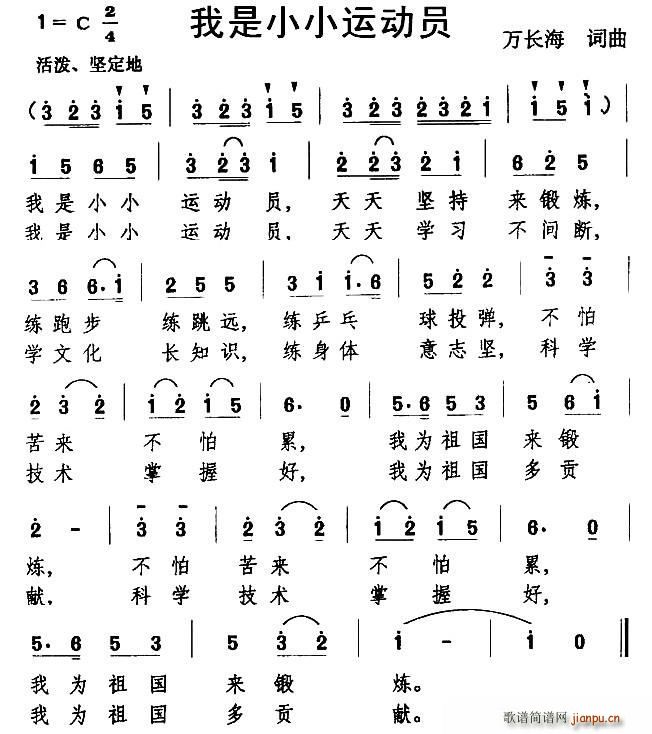 1=C 2/4 我是小小运动员 万长海 词曲
活泼、坚定地
(3 2 3 1 5 | 3 2 3 1 5 | 3 2 3 2 3 2 1 | 1 5 1)
1 5 6 5 | 3 2 3 1 | 2 2 3 2 1 | 6 2 5 |
我是小小 运动员, 天天坚持 来锻炼,
我是小小 运动员, 天天学习 不间断,
3 6 6·1 | 2 5 5 | 3 1 1·6 | 5 2 2 | 3 3 |
练跑步 练跳远, 练乒乓 球投弹, 不怕
学文化 长知识, 练身体 意志坚, 科学
2 3 2 | 1 2 1 5 | 6· 0 | 5·6 5 3 | 5 6 1 |
苦来 不怕 累, 我为祖国 来锻
技术 掌握 好, 我为祖国 多贡
2 - | 3 3 | 2 3 2 | 1 2 1 5 | 6· 0 |
炼, 不怕 苦来 不怕 累,
献, 科学 技术 掌握 好,
5·6 5 3 | 5 3 2 | 1 - | 1 0 ‖
我为祖国 来锻 炼。
我为祖国 多贡 献。
歌谱简谱网
jianpu.cn